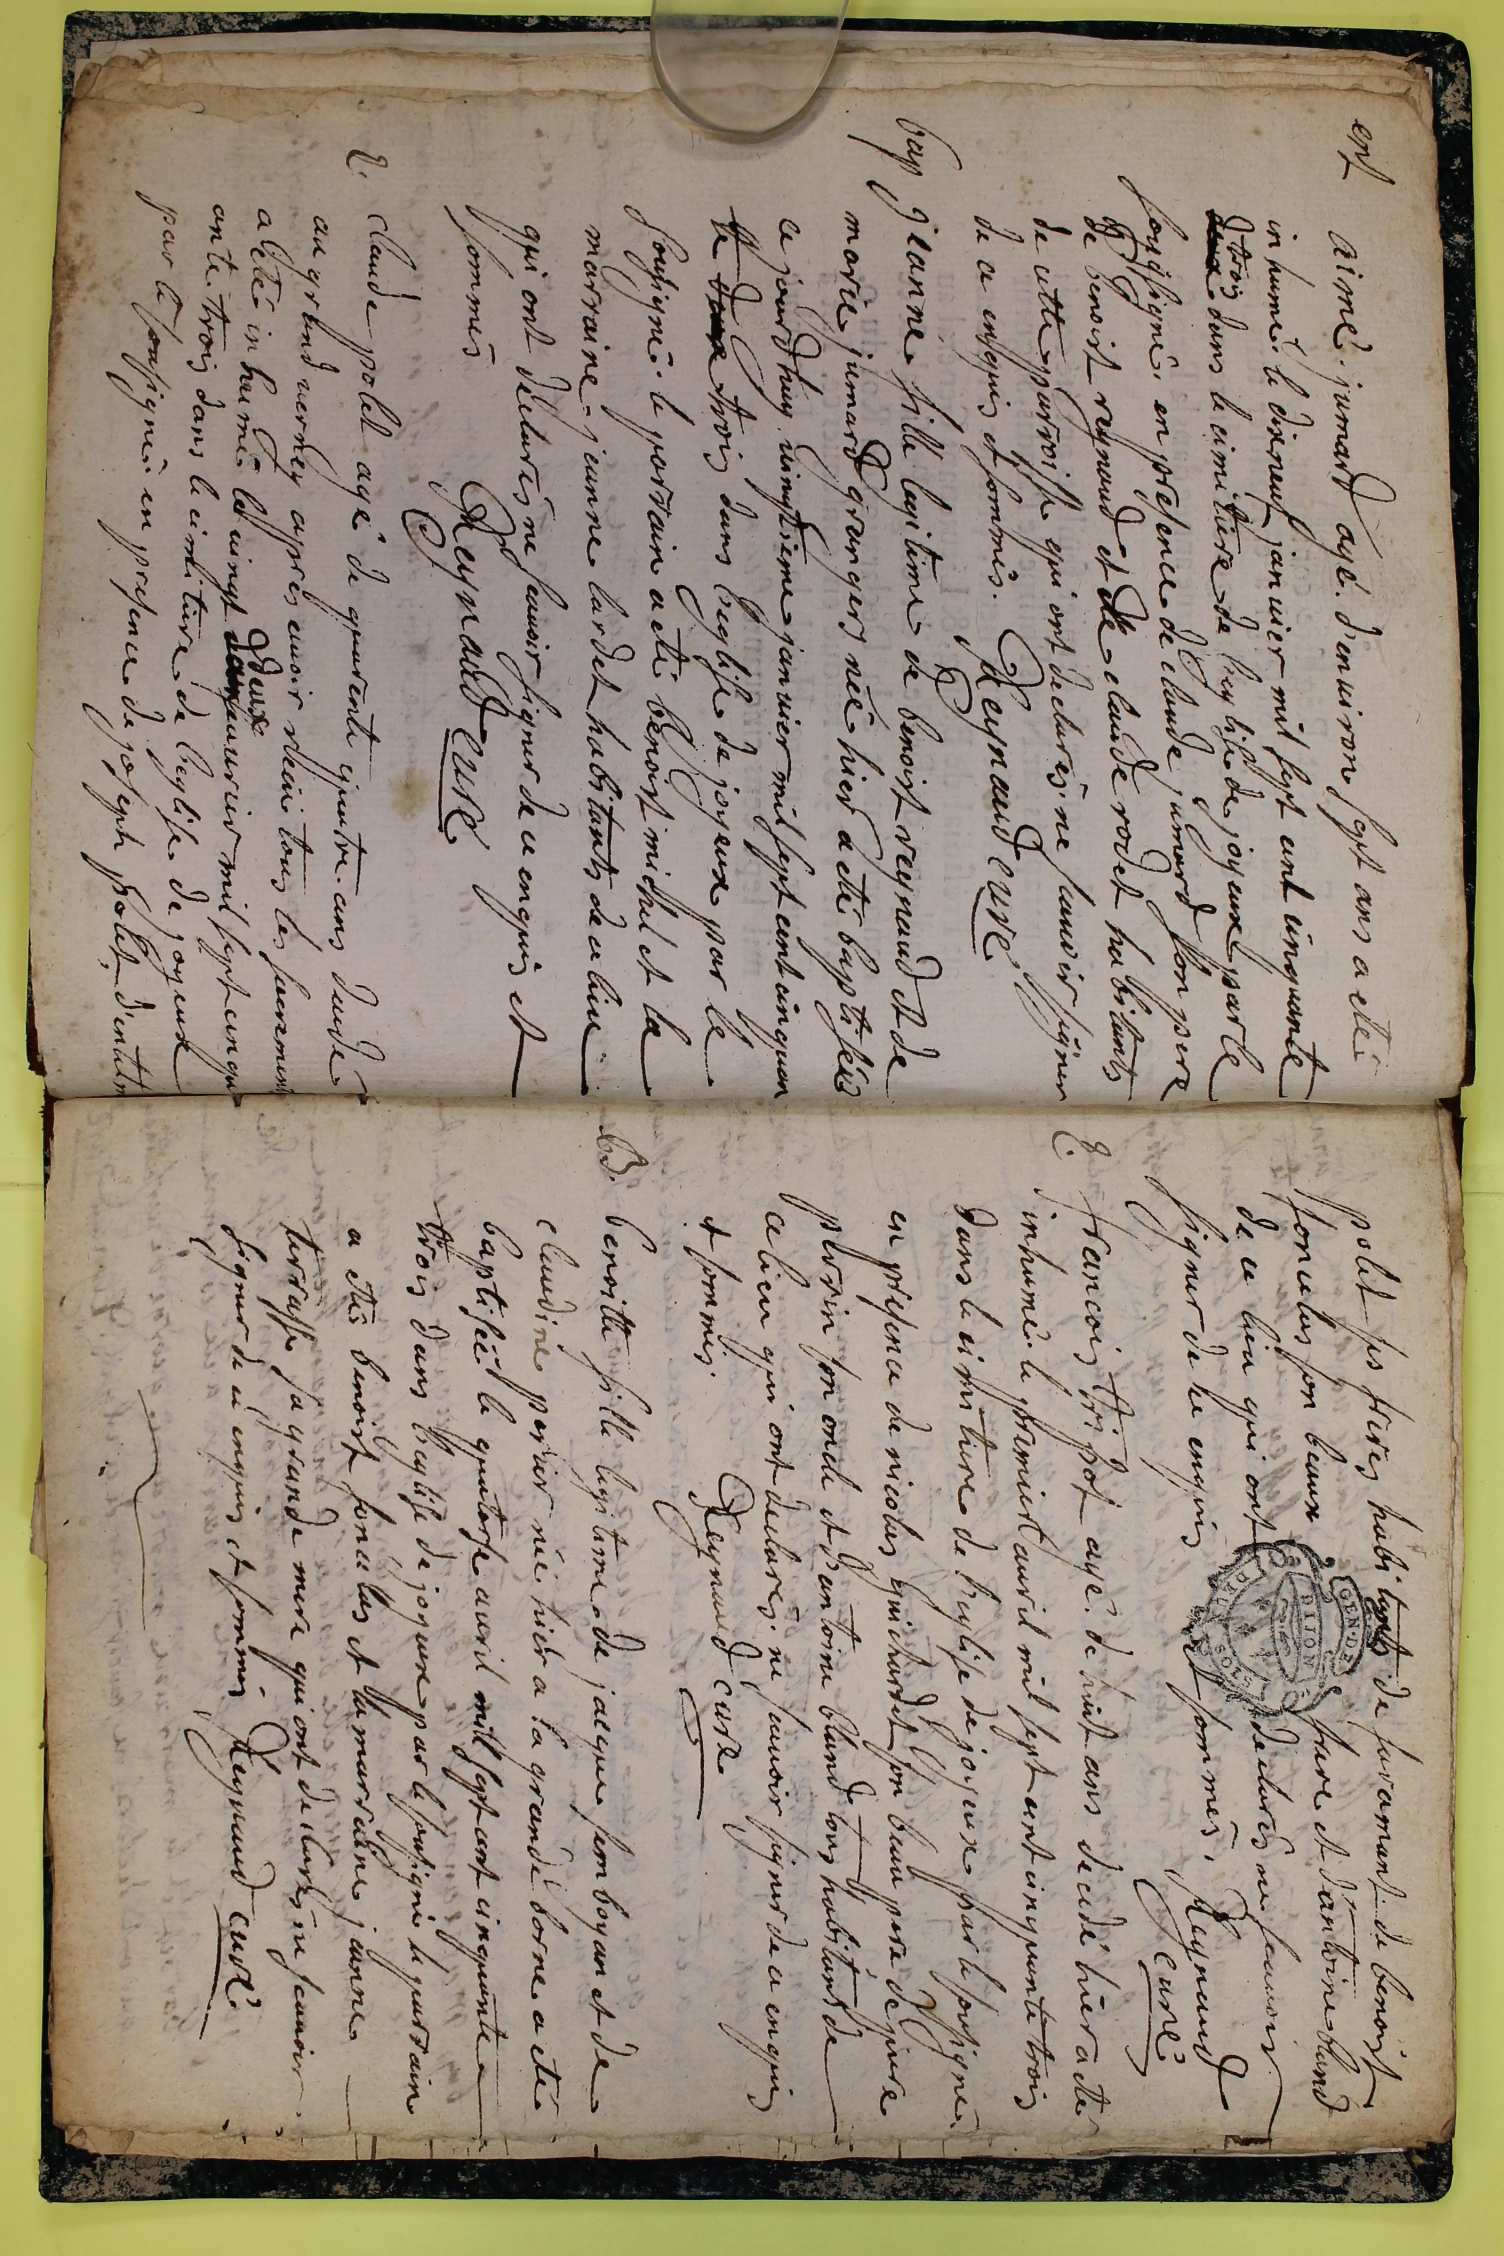 ent
aimé jumard agé d'environ sept ans a eté
inhumé le dixneuf janvier mil sept cent cinquante
trois dans le cimitiere de l'eglise de joyeux par le
soussigné en presence de claude jumard son pere
de benoist reynaud et de claude rodet habitants
de cette parroisse qui ont declarés ne scavoir signer
de ce enquis et sommés. Reynaud curé
bap
jeanne fille legitime de benoist reynaud et de
marie jumard grangers née hier a eté baptisée
ce jourdhuy vingtieme janvier mil sept cent cinquan
te trois dans l'eglise de joyeux par le
soussigné le parrain a eté benoist michel et la
marraine jeanne lardet habitants de ce lieu
qui ont déclarés ne scavoir signer de ce enquis et
sommés Reynaud curé
E.
claude polet agé de quarente quatre ans decede
au grand verney apres avoir receu tous les sacrement
a eté inhumé le vingt deux
feuvrier mil sept cinqu
ante trois dans le cimitiere de l'eglise de joyeux
par le soussigné en presence de joseph polet d'
polet ses freres habitants de faramant de benoist
foncelus son beaux frere et d'antoine bland
de ce lieu qui ont declarés ne scavoir
signer de ce enquis et sommés. Reynaud
curé
GEN. DE
DIJON
E.
francois tripot agé de huit ans decedé hier a eté
inhumé le premier avril mil sept cent cinquante trois
dans le cimitiere de l'eglise de joyeux par le soussigné
en presence de nicolas guichardet son beau pere de pierre
perrin son oncle et d'antoine bland tous habitants de
ce lieu qui ont declarés ne scavoir signer de ce enquis
et sommés Reynaud curé
B.
benoitte fille legitime de jacque semboyan et de
claudine perier née hier a la grande borne a eté
baptisée le quatorse avril mill sept cent cinquante
trois dans l'eglise de joyeux par le soussigné le parrain
a etés benoist foncelus et la marraine jeanne
terrasse sa grande mere qui ont declarés ne scavoir
signer de ce enquis et sommés Reynaud curé